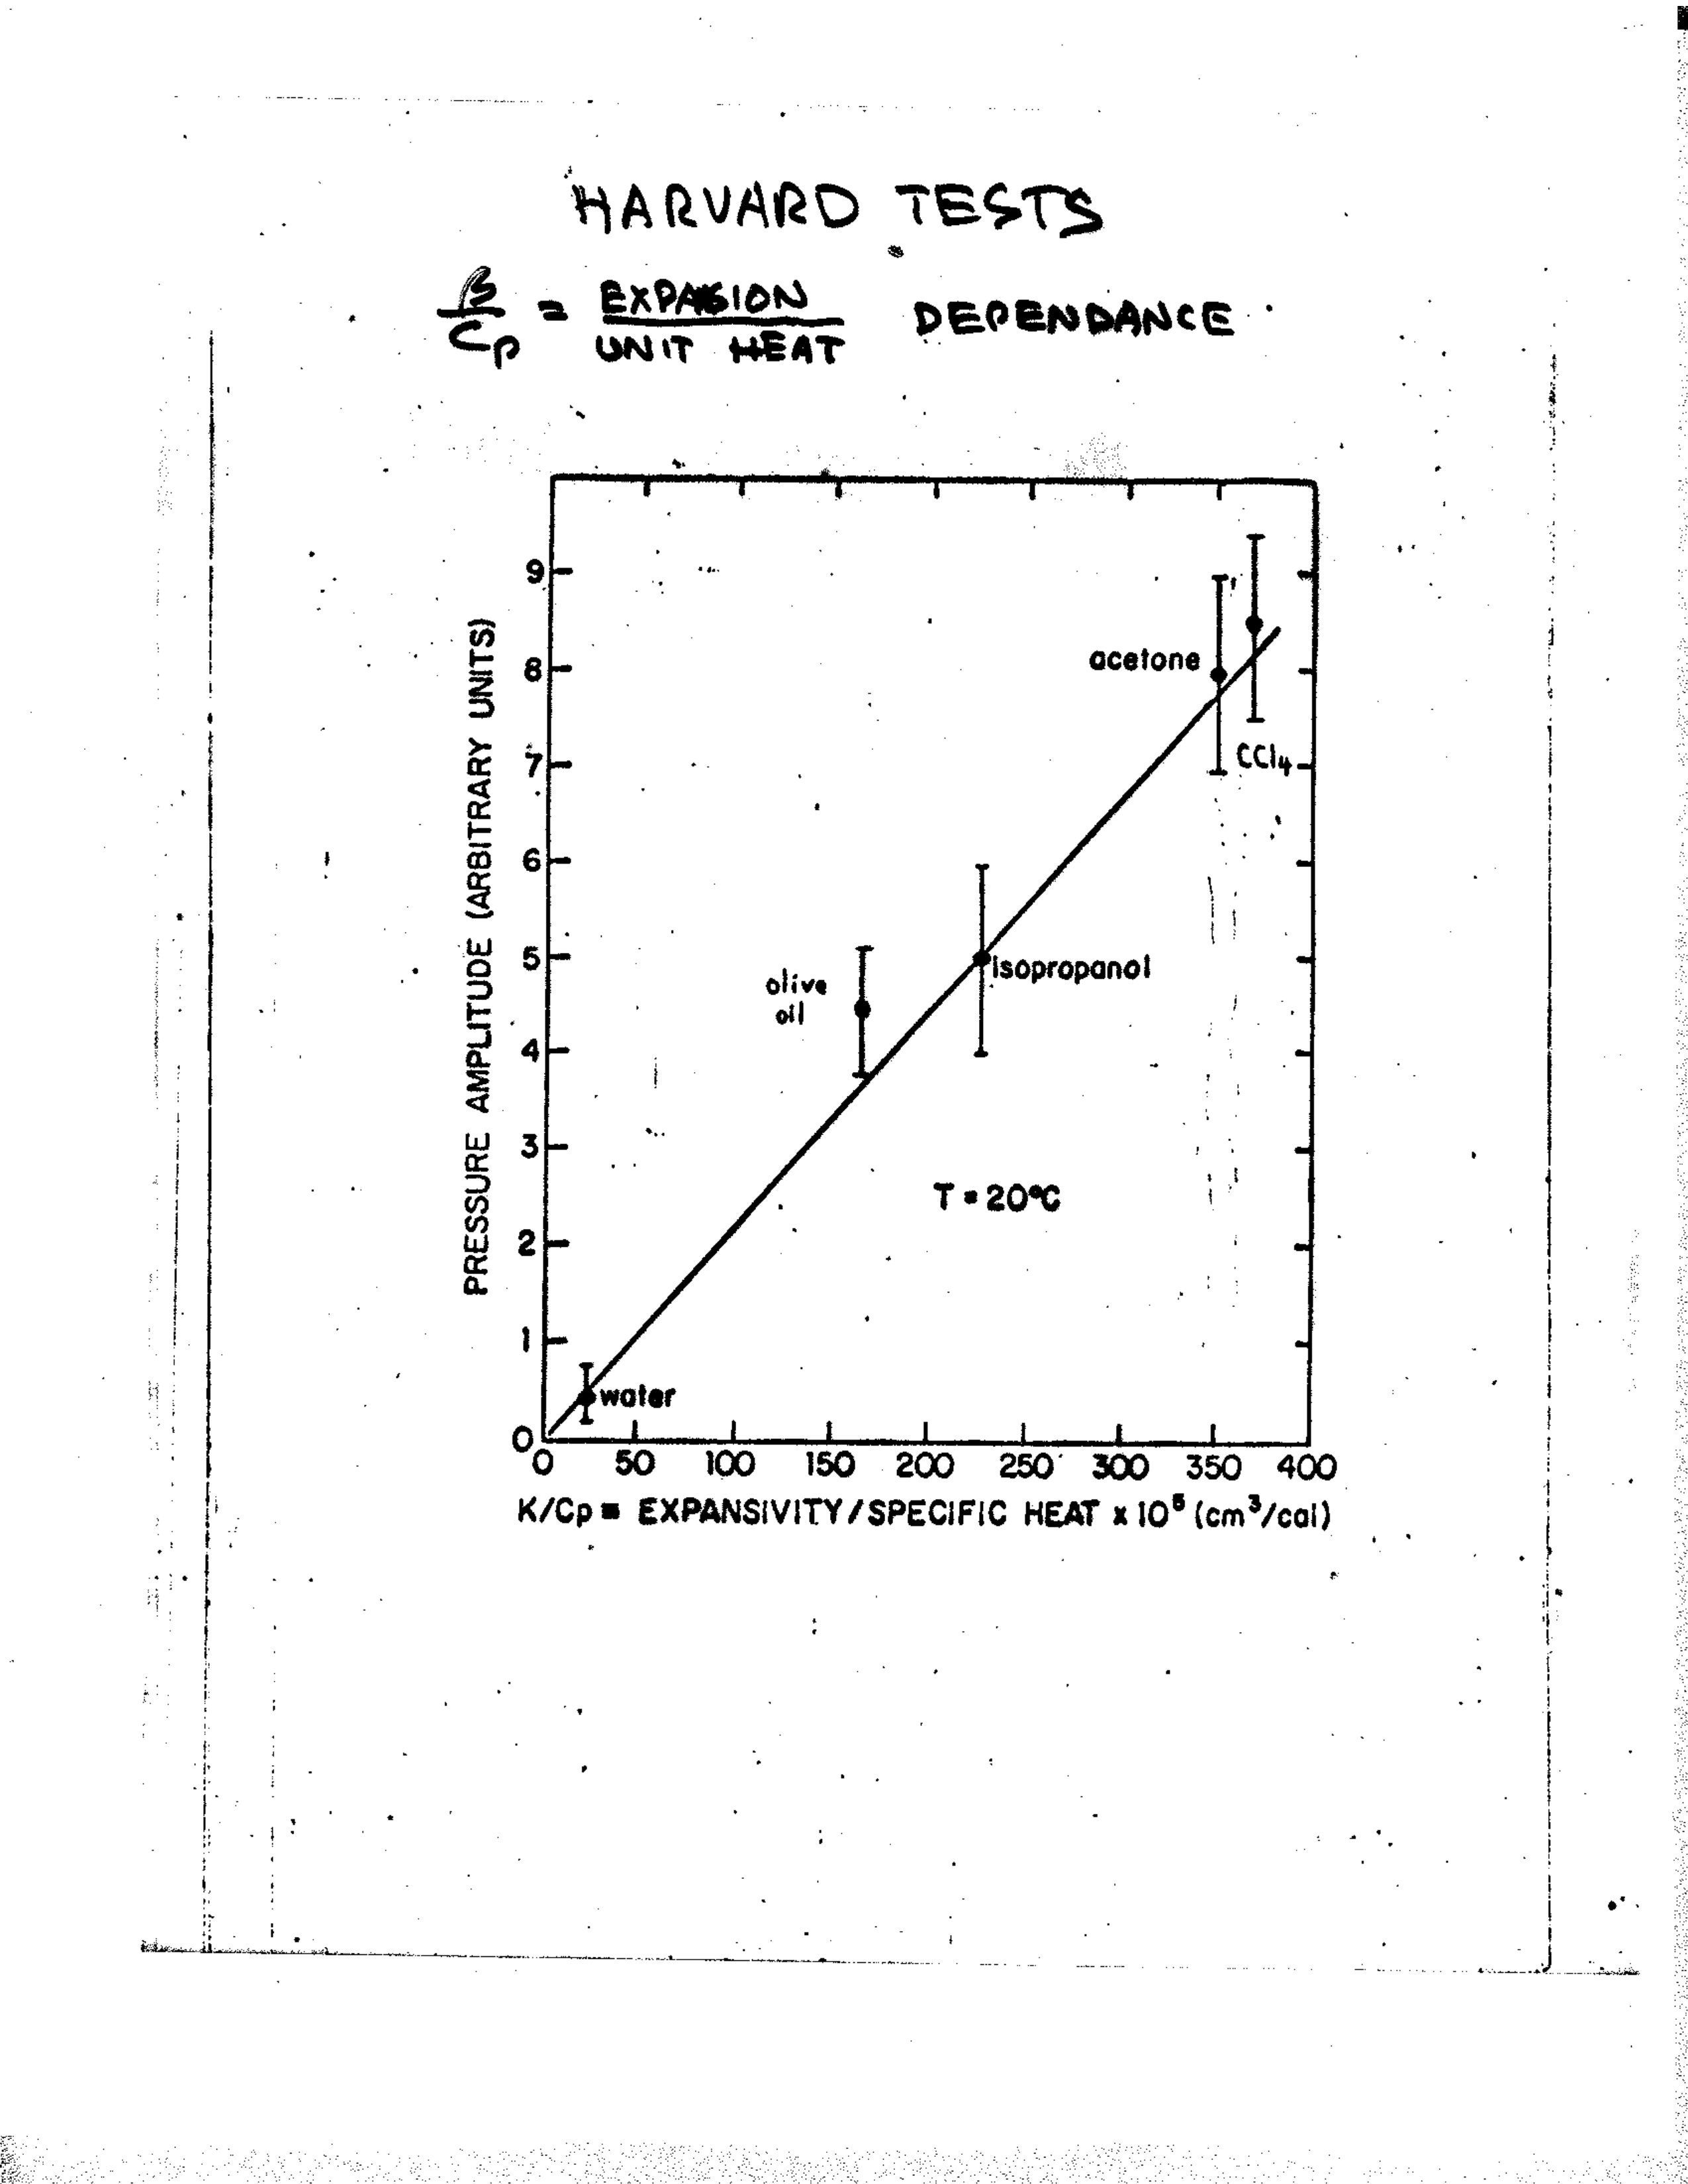 HARVARD TESTS
β/Cp = EXPASION/UNIT HEAT DEPENDANCE
PRESSURE AMPLITUDE (ARBITRARY UNITS)
9
8
7
6
5
4
3
2
1
0
acetone
CCl4
isopropanol
olive
oil
T = 20°C
water
0 50 100 150 200 250 300 350 400
K/Cp = EXPANSIVITY/SPECIFIC HEAT x 10⁵ (cm³/cal)